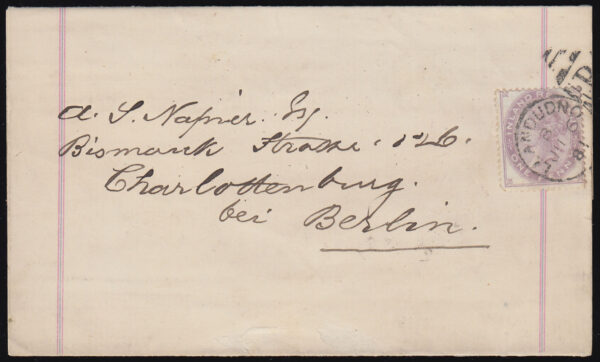 A. S. Napier. Esq.
Bismarck Strasse. 126.
Charlottenburg.
bei Berlin.
LLANDUDNO
81
INLAND RE